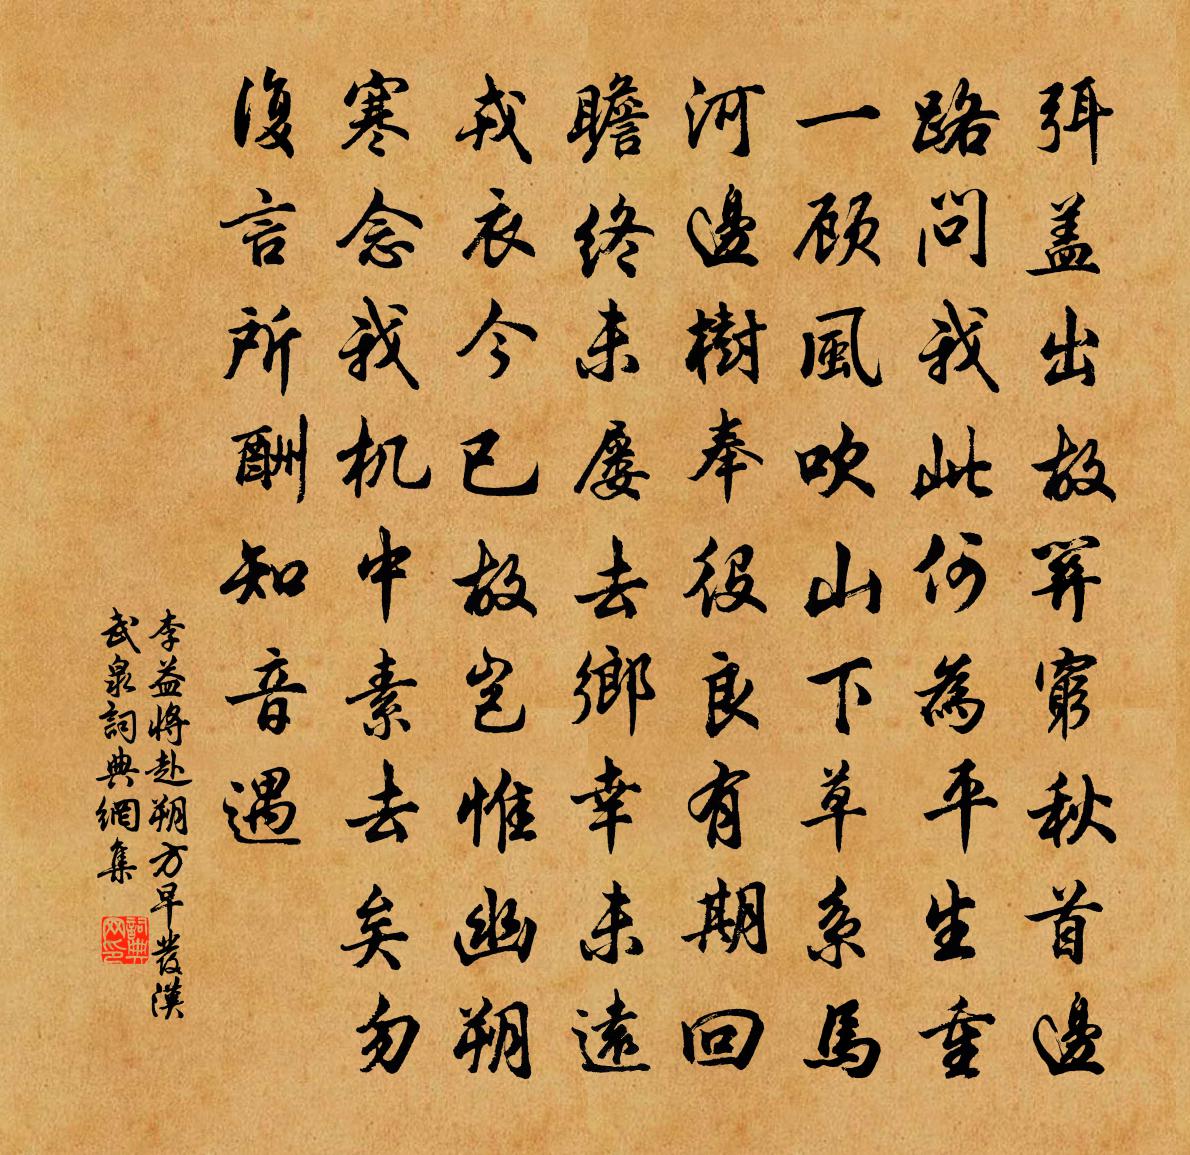 弭盖出故關窮秋首邊
路問我此何為平生重
一顧風吹山下草系馬
河邊樹奉役良有期回
瞻終未屡去鄉幸未遠
戎衣今已故豈惟幽朔
寒念我机中素去矣勿
復言所酬知音遇
李益將赴朔方早發漢
武泉詞典網集
詞典
网印